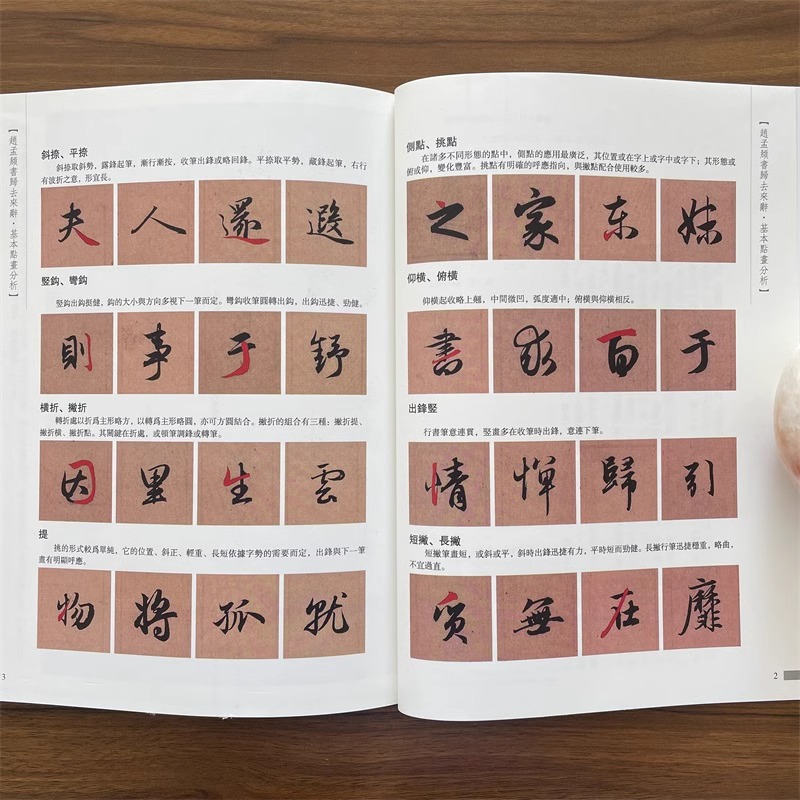 【趙孟頫書歸去來辭·基本點畫分析】
側點、挑點
在諸多不同形態的點中，側點的應用最廣泛，其位置或在字上或字中或字下；其形態或
俯或仰，變化豐富。挑點有明確的呼應指向，與撇點配合使用較多。
之 家 东 妹
仰橫、俯橫
仰橫起收略上翹，中間微凹，弧度適中；俯橫與仰橫相反。
書 求 百 于
出鋒豎
行書筆意連貫，豎畫多在收筆時出鋒，意連下筆。
情 憚 歸 引
短撇、長撇
短撇筆畫短，或斜或平，斜時出鋒迅捷有力，平時短而勁健。長撇行筆迅捷穩重，略曲，
不宜過直。
質 無 在 靡
2
【趙孟頫書歸去來辭·基本點畫分析】
斜捺、平捺
斜捺取斜勢，露鋒起筆，漸行漸按，收筆出鋒或略回鋒。平捺取平勢，藏鋒起筆，右行
有波折之意，形宜長。
夫 人 還 遐
竪鈎、彎鈎
竪鈎出鈎挺健，鈎的大小與方向多視下一筆而定。彎鈎收筆圓轉出鈎，出鈎迅捷、勁健。
則 事 于 舒
橫折、撇折
轉折處以折爲主形略方，以轉爲主形略圓，亦可方圓結合。撇折的組合有三種：撇折提、
撇折橫、撇折點。其關鍵在折處，或頓筆調鋒或轉筆。
因 里 生 雲
提
挑的形式較爲單純，它的位置、斜正、輕重、長短依據字勢的需要而定，出鋒與下一筆
畫有明顯呼應。
物 將 孤 就
3